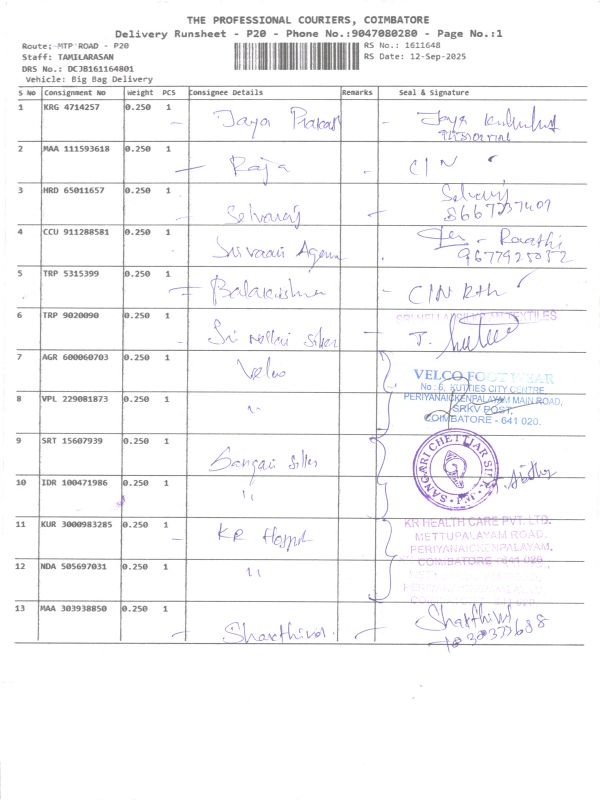 THE PROFESSIONAL COURIERS, COIMBATORE
Delivery Runsheet - P20 - Phone No.:9047080280 - Page No.:1
Route:-MTP ROAD - P20
RS No.: 1611648
Staff: TAMILARASAN
RS Date: 12-Sep-2025
DRS No.: DCJB161164801
Vehicle: Big Bag Delivery
S No Consignment No Weight PCS Consignee Details Remarks Seal & Signature
1 KRG 4714257 0.250 1 Jaya Prakash Jaya
2 MAA 111593618 0.250 1 Raja CIN
3 HRD 65011657 0.250 1 Selvaraj Selvaraj
4 CCU 911288581 0.250 1 Srivaari Agency Revathi
9677925052
5 TRP 5315399 0.250 1 Balakrishna CIN
6 TRP 9020090 0.250 1 Sri Silks
7 AGR 600060703 0.250 1 Velco
VELCO FOOT WEAR
No: 6, KUTTIES CITY CENTRE,
8 VPL 229081873 0.250 1 "
PERIYANAICKENPALAYAM MAIN ROAD,
SRKV POST,
COIMBATORE - 641 020.
9 SRT 15607939 0.250 1 Silks
SANGARI CHETTIAR
10 IDR 100471986 0.250 1 "
11 KUR 3000983285 0.250 1 KR Hospital
KR HEALTH CARE PVT. LTD.
METTUPALAYAM ROAD,
PERIYANAICKENPALAYAM,
12 NDA 505697031 0.250 1 "
COIMBATORE - 641 020
13 MAA 303938850 0.250 1 Shakthivel Shakthivel